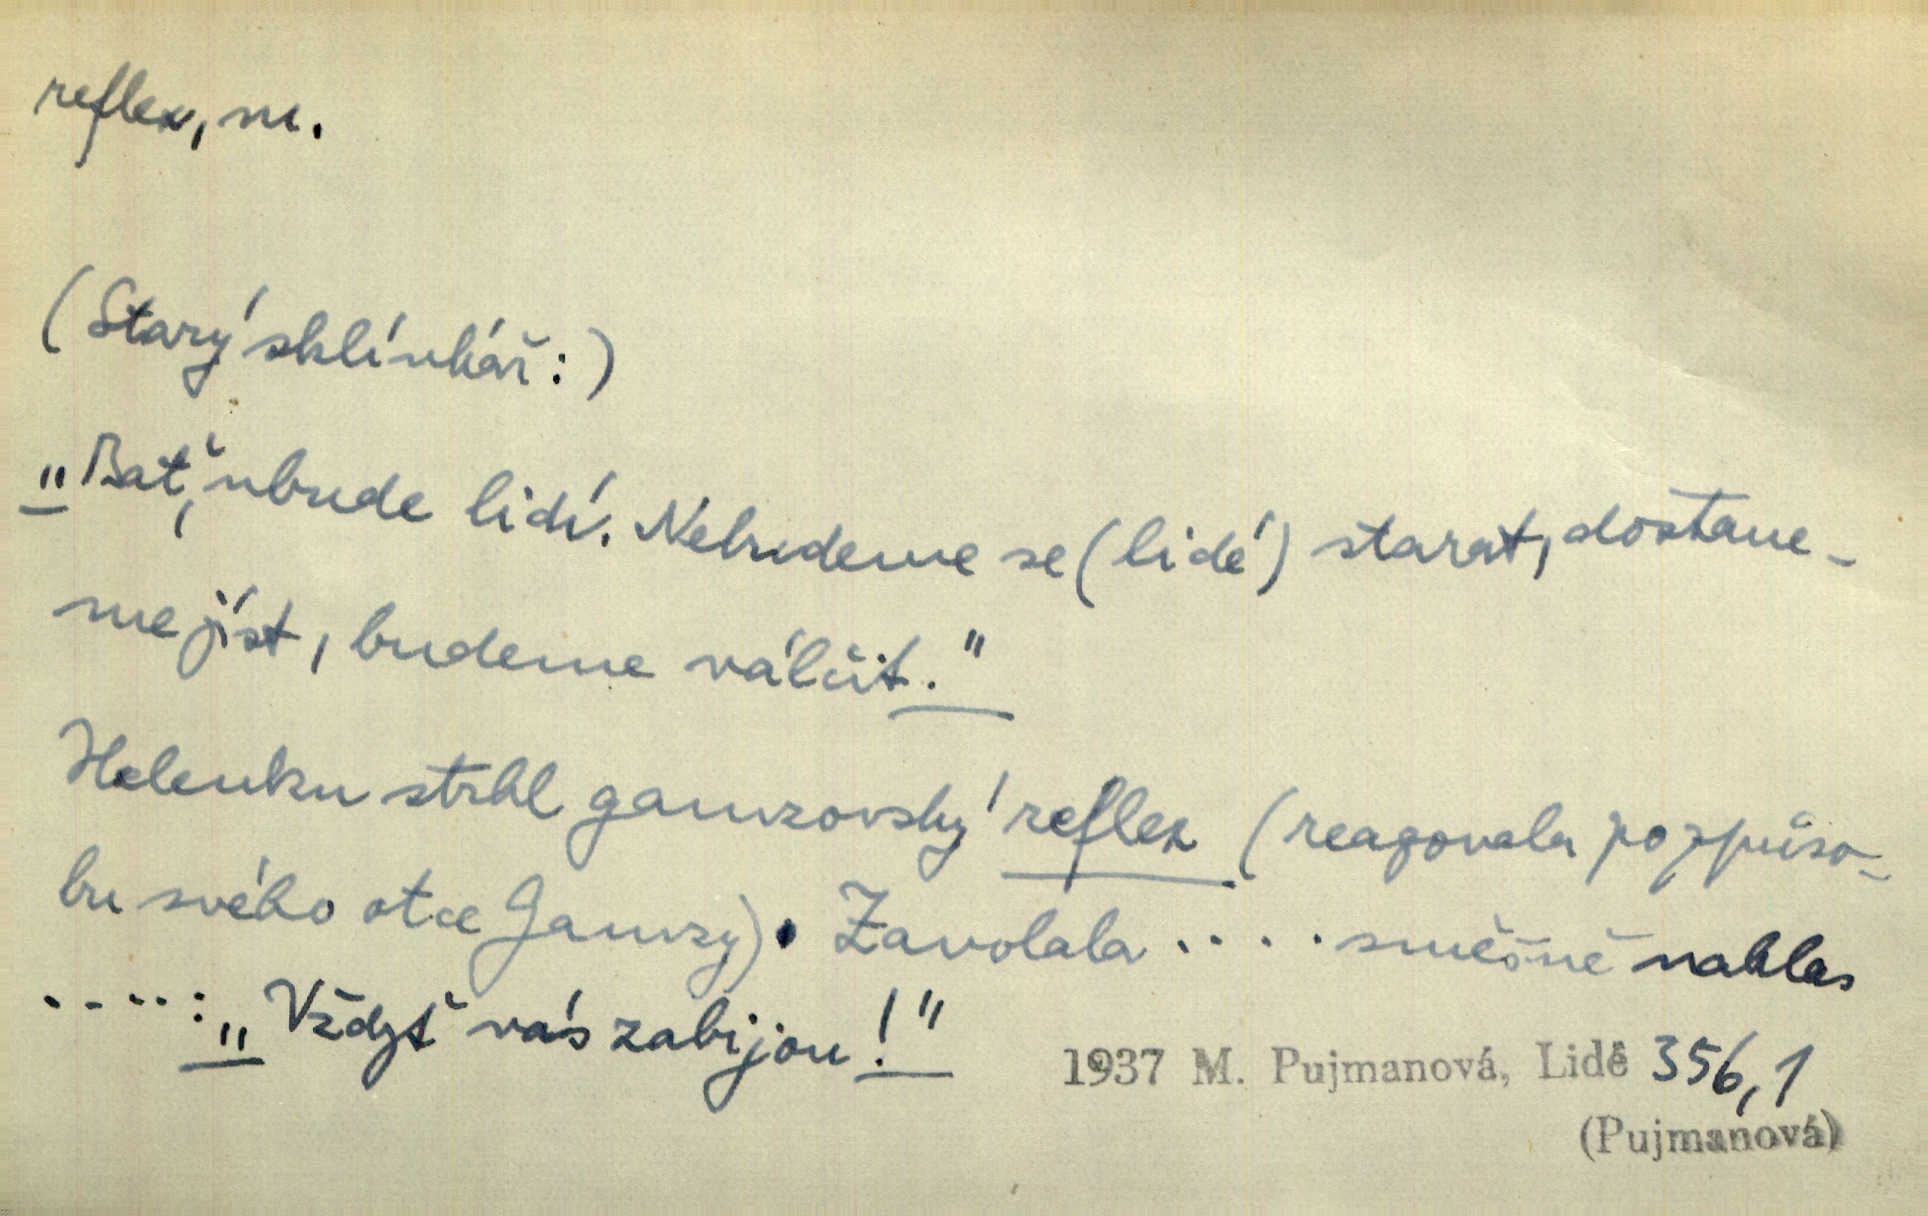 reflex, m.
(Starý sklínkář:)
„Bať, ubude lidí. Nebudeme se (lidé) starat, dostane-
me jíst, budeme válčit."
Helenku strhl gamzovský reflex (reagovala po způso-
bu svého otce Gamzy). Zavolala .... směšně nahlas
....: „Vždyť vás zabijou!"
1937 M. Pujmanová, Lidé 356,1
(Pujmanová)